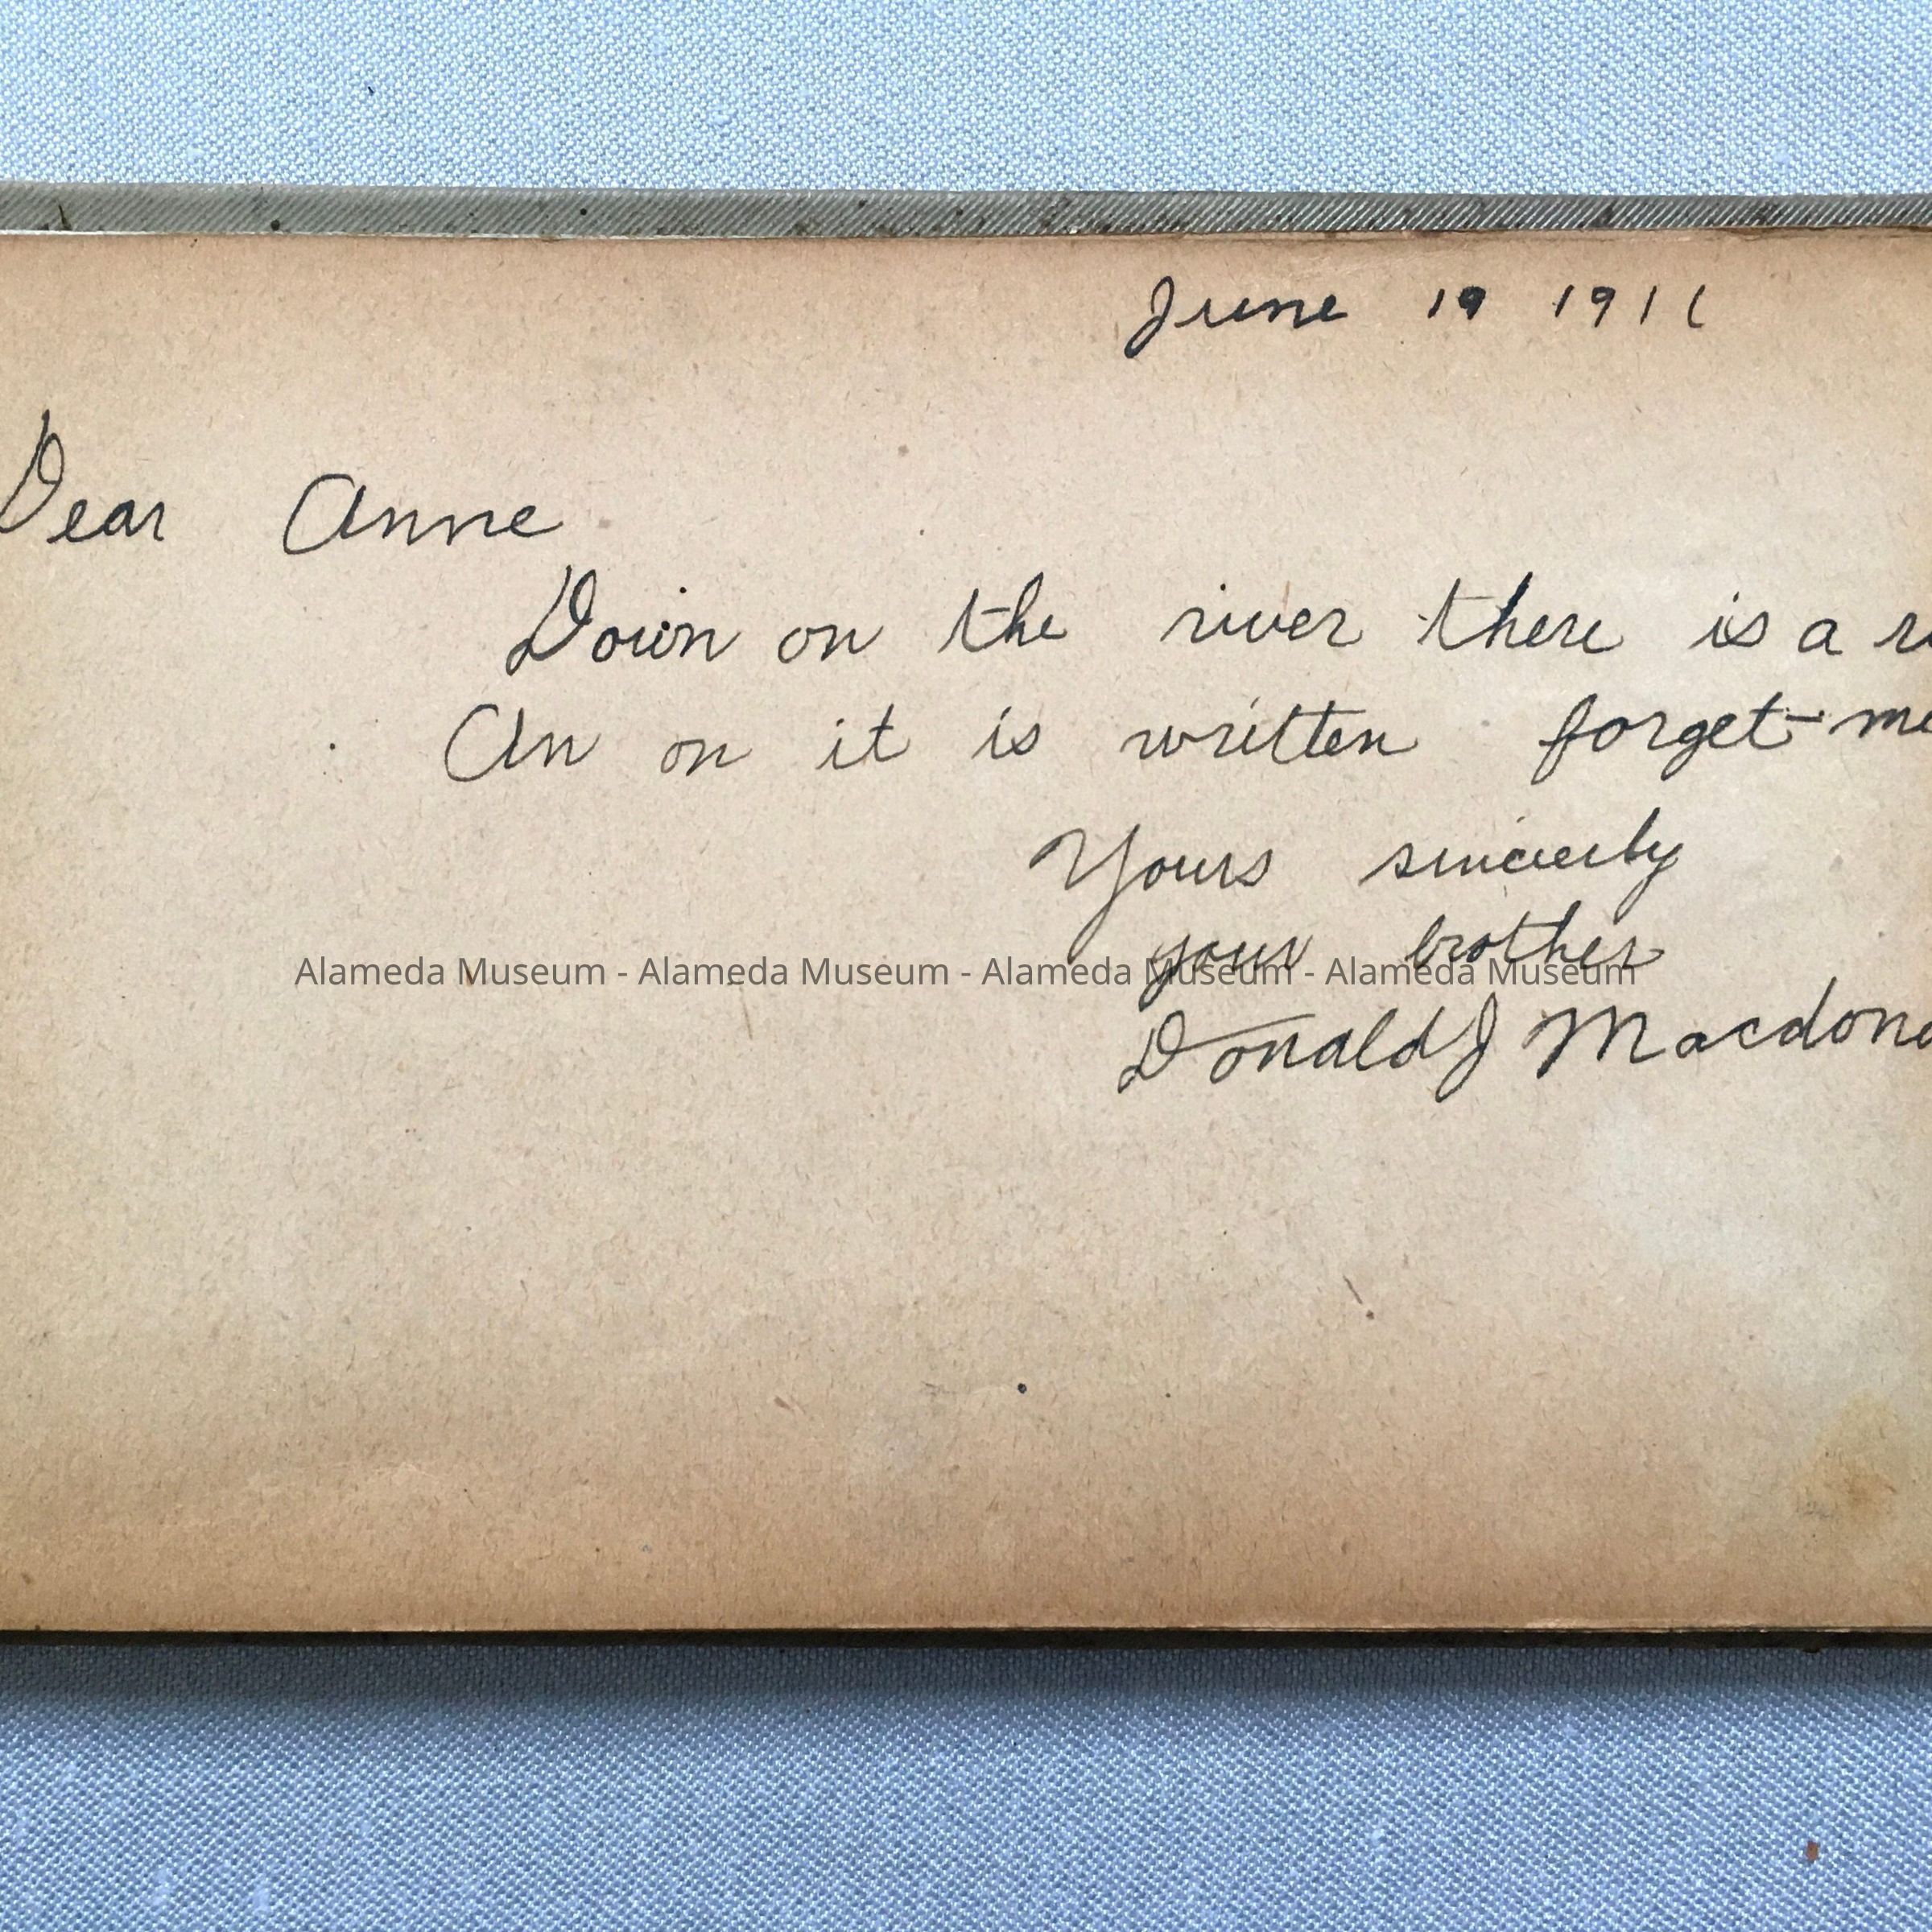 June 19 1911
Dear Anne
Down on the river there is a
An on it is written forget-me
Yours sincerly
your brother
Alameda Museum - Alameda Museum - Alameda Museum - Alameda Museum
Donald J Macdona